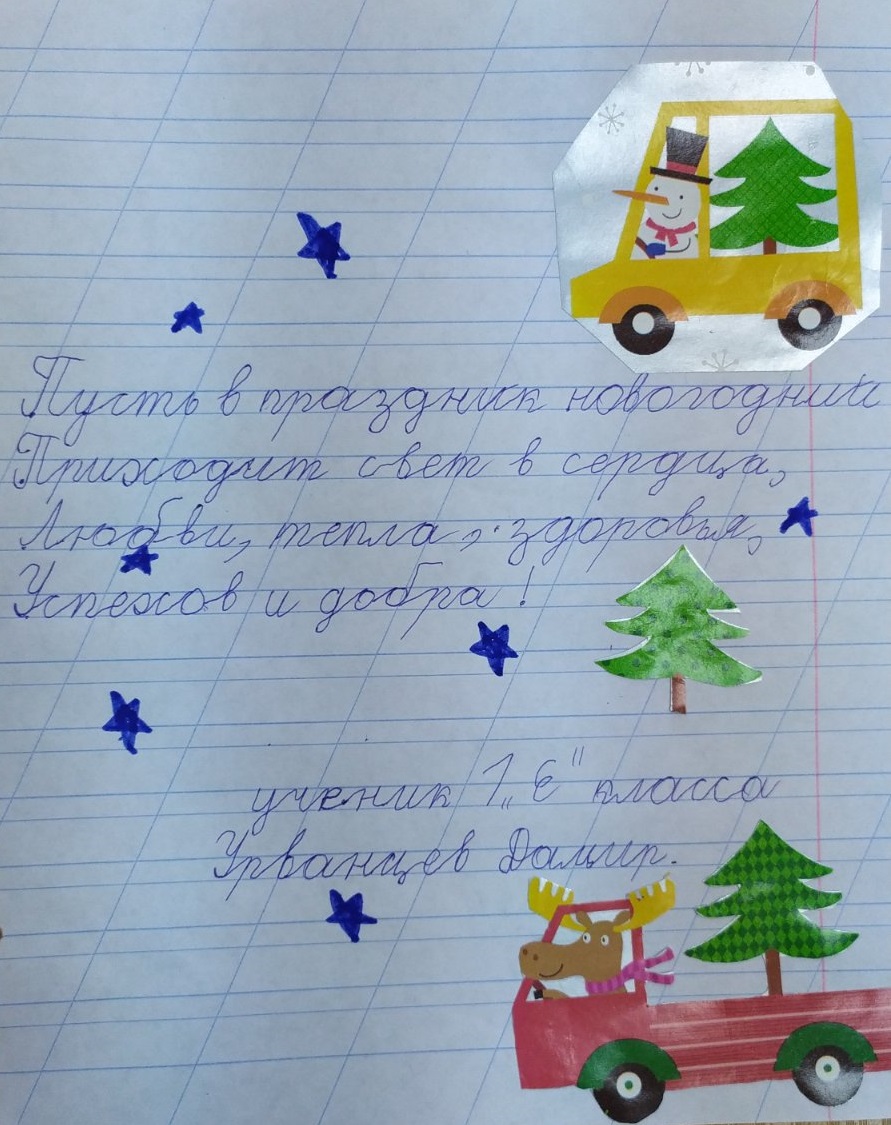 Пусть в праздник новогодний
Приходит свет в сердца,
Любви, тепла, здоровья,
Успехов и добра!
ученик 1 „Е" класса
Урванцев Дамир.